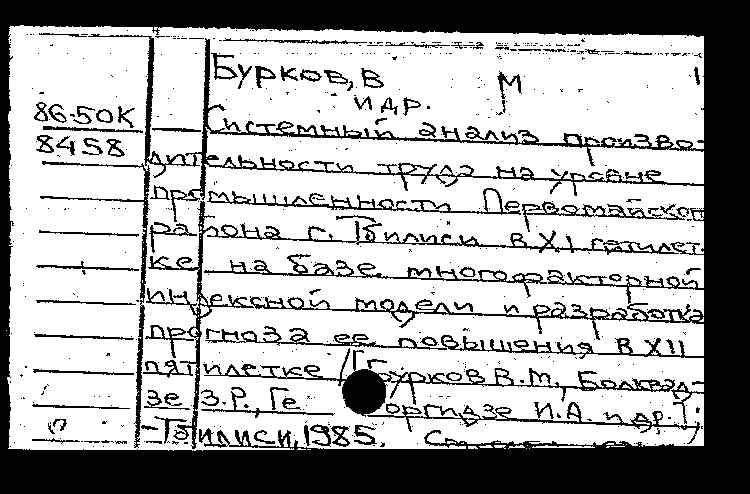 Бурков, В М 1
и др.
86-50К Системный анализ произво-
8458 дительности труда на уровне
промышленности Первомайског
района г. Тбилиси в XI пятилет-
ке на базе многофакторной
индексной модели и разработка
прогноза ее повышения в XII
пятилетке / Бурков В.М., Болквад-
зе З.Р., Ге оргидзе И.А. и др.;
-Тбилиси, 1985.